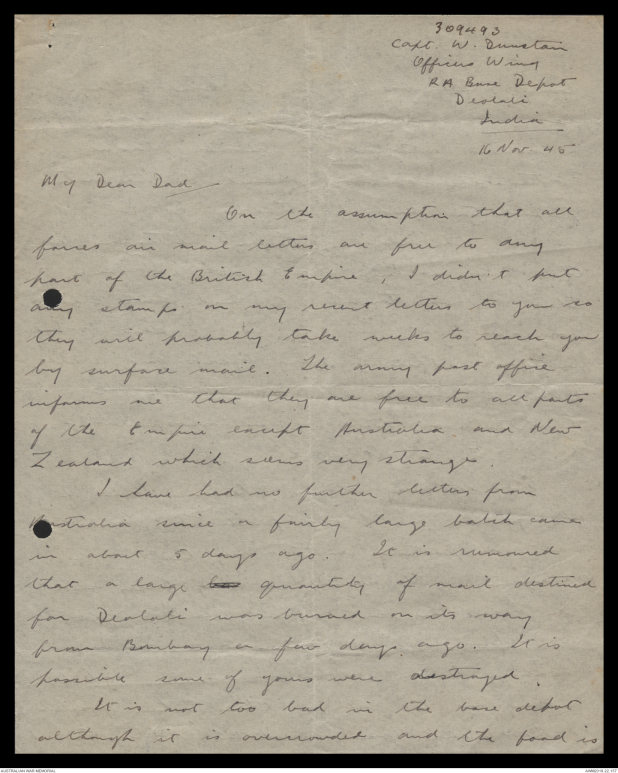 309493
Capt. W. Dunstan
Officers Wing
RA Base Depot
Deolali
India
16 Nov 45
My Dear Dad
On the assumption that all
forces air mail letters are free to any
part of the British Empire, I didn't put
any stamps on my recent letters to you so
they will probably take weeks to reach you
by surface mail. The army post office
informs me that they are free to all parts
of the Empire except Australia and New
Zealand which seems very strange.
I have had no further letters from
Australia since a fairly large batch came
in about 5 days ago. It is rumoured
that a large quantity of mail destined
for Deolali was burned on its way
from Bombay a few days ago. It is
possible some of yours were destroyed.
It is not too bad in the base depot
although it is overcrowded and the food is
AUSTRALIAN WAR MEMORIAL